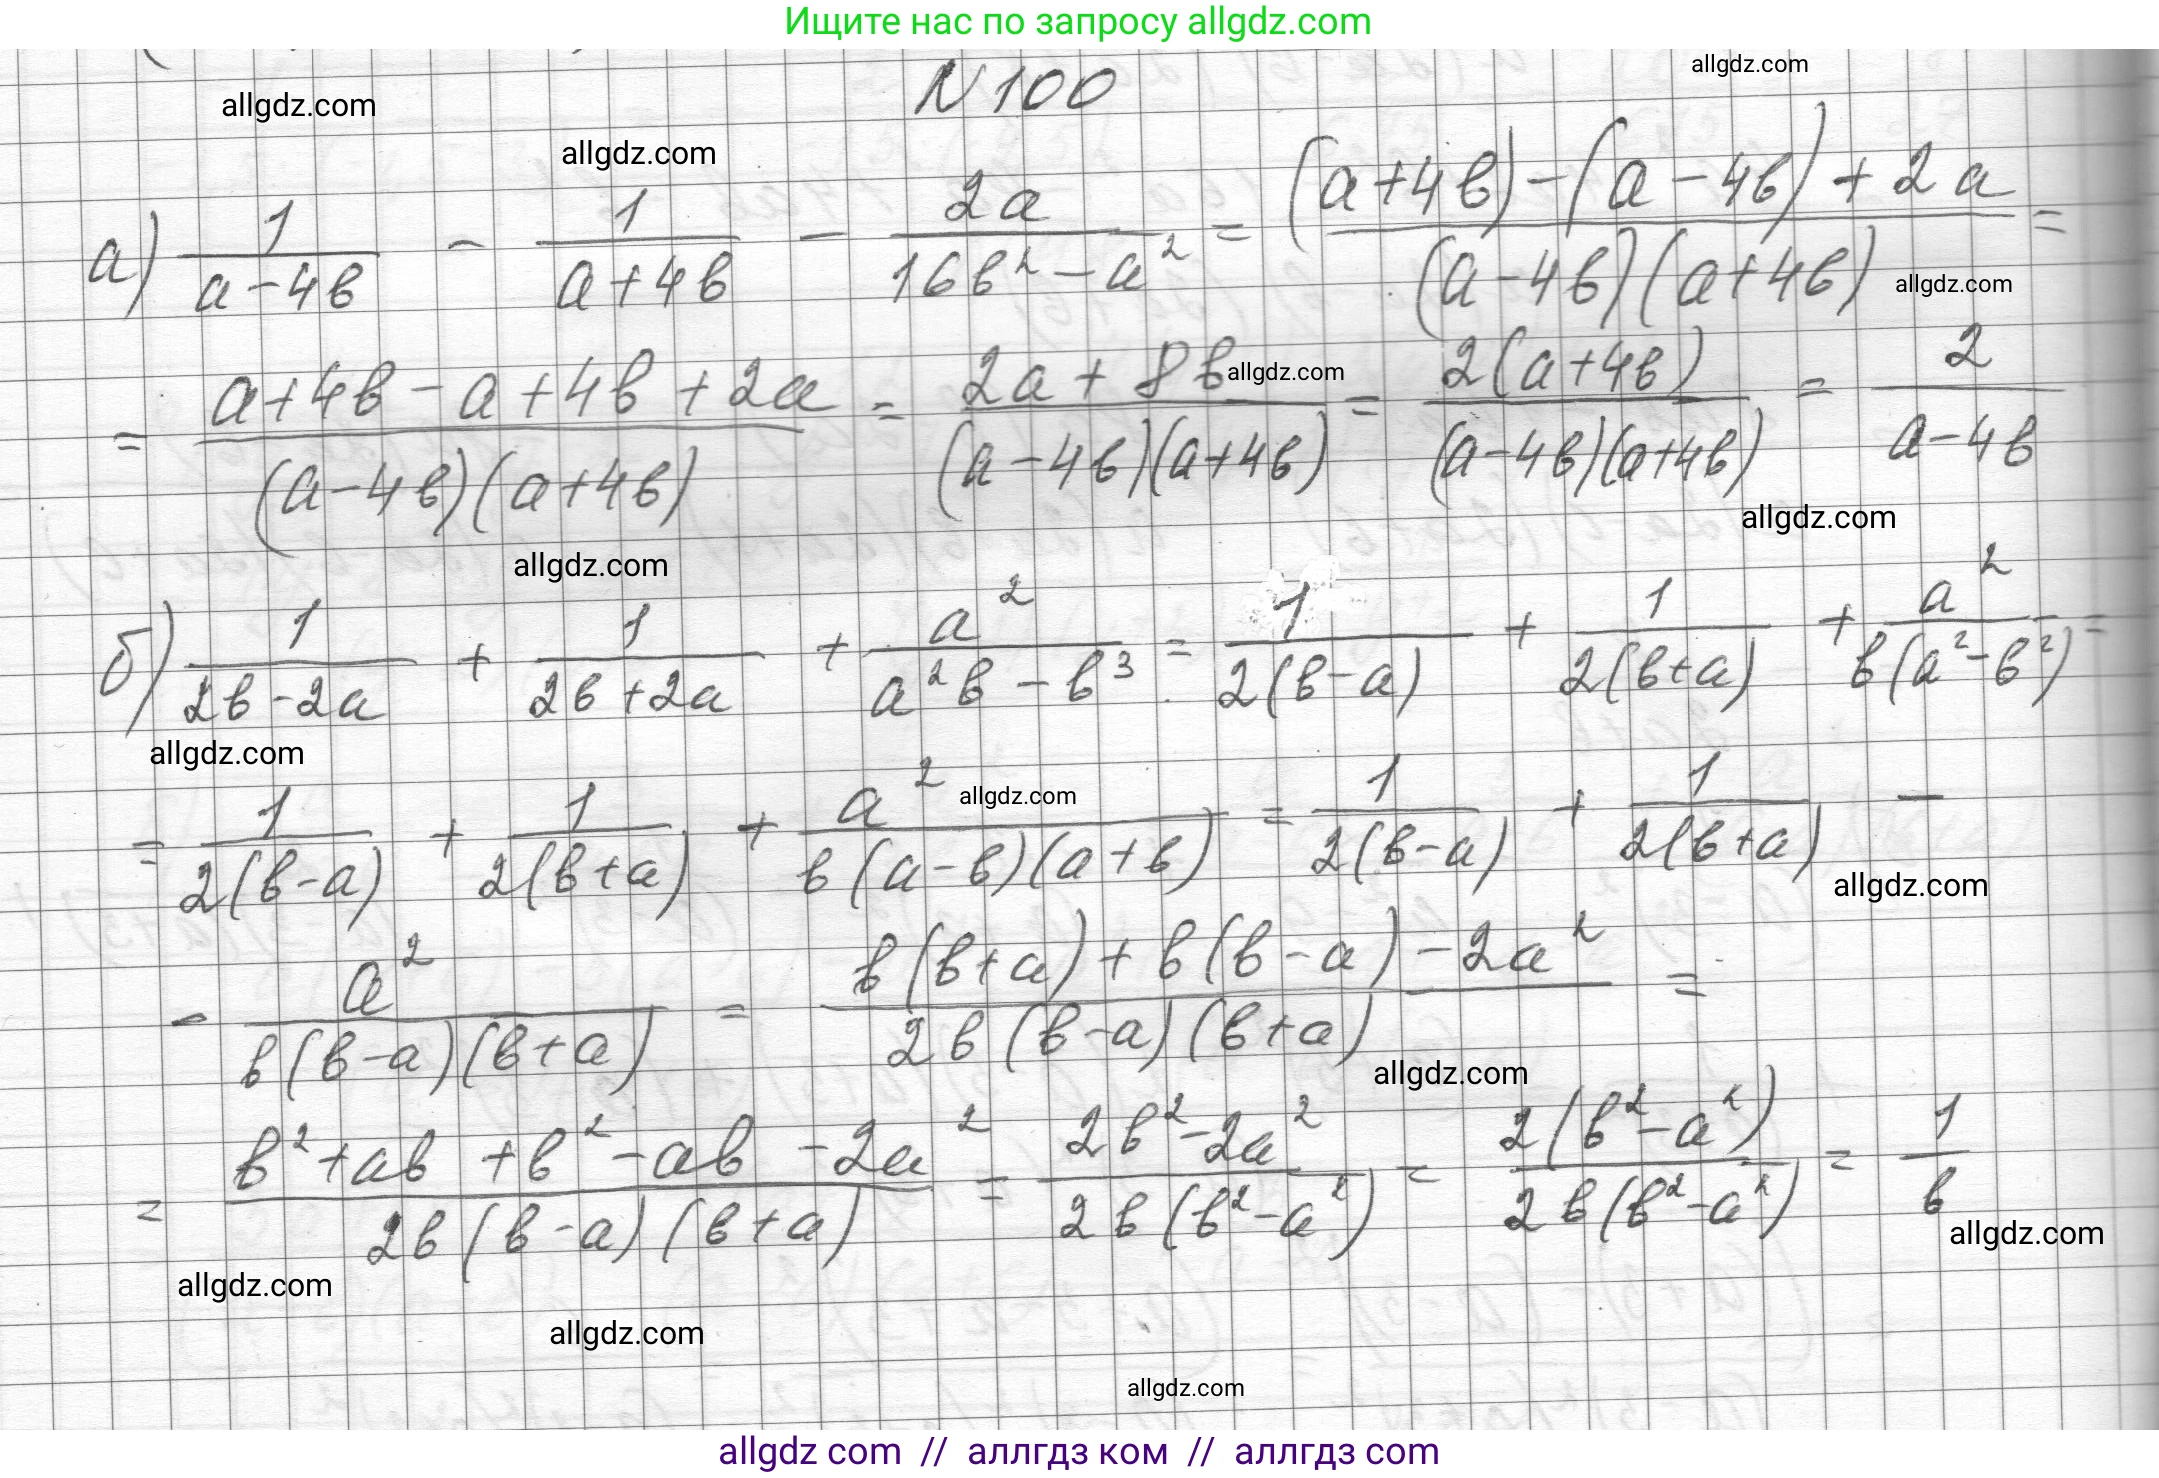 Ищите нас по запросу allgdz.com
N 100
allgdz.com
allgdz.com
allgdz.com
а) 1/(a-4b) - 1/(a+4b) - 2a/(16b² - a²) = ((a+4b) - (a-4b) + 2a)/((a-4b)(a+4b)) =
allgdz.com
= (a+4b-a+4b+2a)/((a-4b)(a+4b)) = (2a+8b)/((a-4b)(a+4b)) = 2(a+4b)/((a-4b)(a+4b)) = 2/(a-4b)
allgdz.com
allgdz.com
allgdz.com
б) 1/(2b-2a) + 1/(2b+2a) + a²/(a²b - b³) = 1/(2(b-a)) + 1/(2(b+a)) + a²/(b(a²-b²)) =
allgdz.com
= 1/(2(b-a)) + 1/(2(b+a)) + a²/(b(a-b)(a+b)) = 1/(2(b-a)) + 1/(2(b+a)) -
allgdz.com
allgdz.com
- a²/(b(b-a)(b+a)) = (b(b+a) + b(b-a) - 2a²)/(2b(b-a)(b+a)) =
allgdz.com
= (b²+ab+b²-ab-2a²)/(2b(b-a)(b+a)) = (2b²-2a²)/(2b(b²-a²)) = 2(b²-a²)/(2b(b²-a²)) = 1/b
allgdz.com
allgdz.com
allgdz.com
allgdz.com
allgdz com // аллгдз ком // аллгдз com